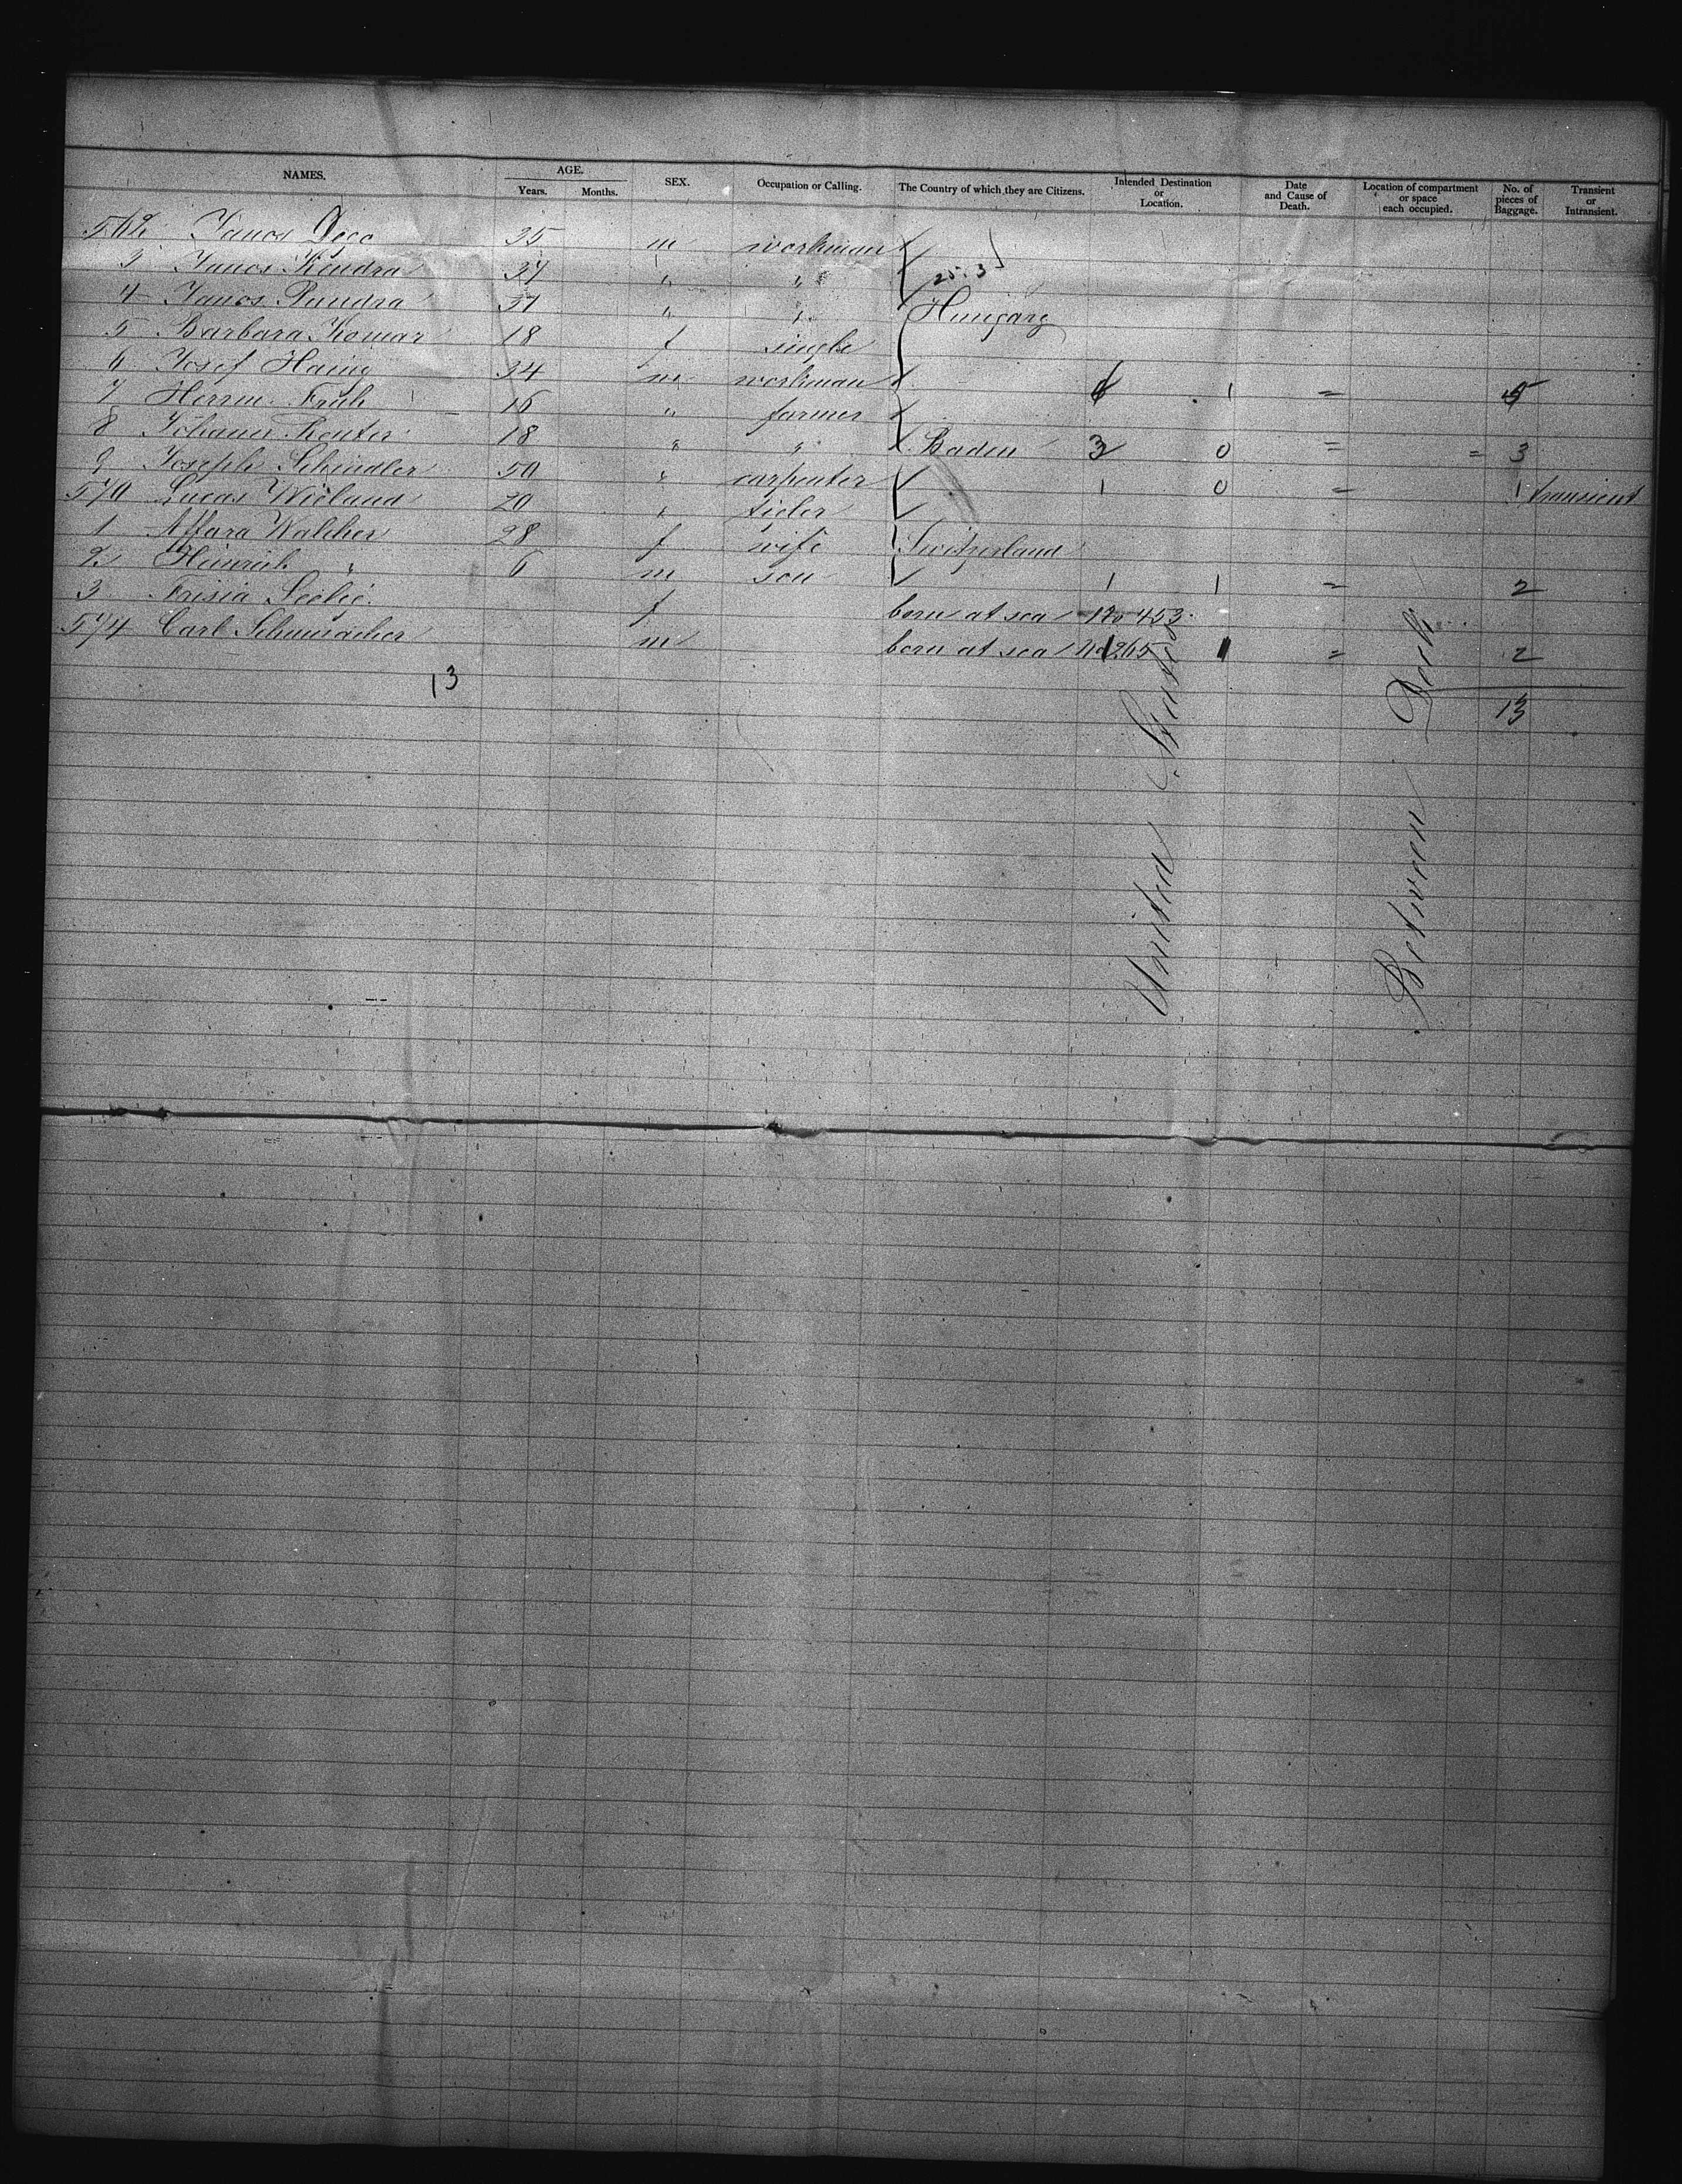 NAMES. AGE. Years. Months. SEX. Occupation or Calling. The Country of which they are Citizens. Intended Destination or Location. Date and Cause of Death. Location of compartment or space each occupied. No. of pieces of Baggage. Transient or Intransient.
562 Janos 35 m workman
3 Janos Kendra 37 " "
25.3
4 Janos Pandra 37 " " Hungary
5 Barbara Komar 18 f single
6 Josef 34 m workman 1 = 5
7 Herm. Früh 16 " farmer
8 Johann Reuter 18 " " Baden 3 0 = = 3
9 Joseph Schindler 50 " carpenter 1 0 = 1 transient
570 Lucas Wieland 20 "
1 Affara Walcher 28 f wife Switzerland
2 Heinrich " 6 m son 1 1 = 2
3 Frisia f born at sea No 453
574 Carl Schumacher m born at sea No 265 = 2
13
13
United States
Between Deck